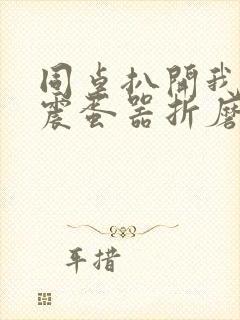 同桌扒開我
震蛋器折磨
措